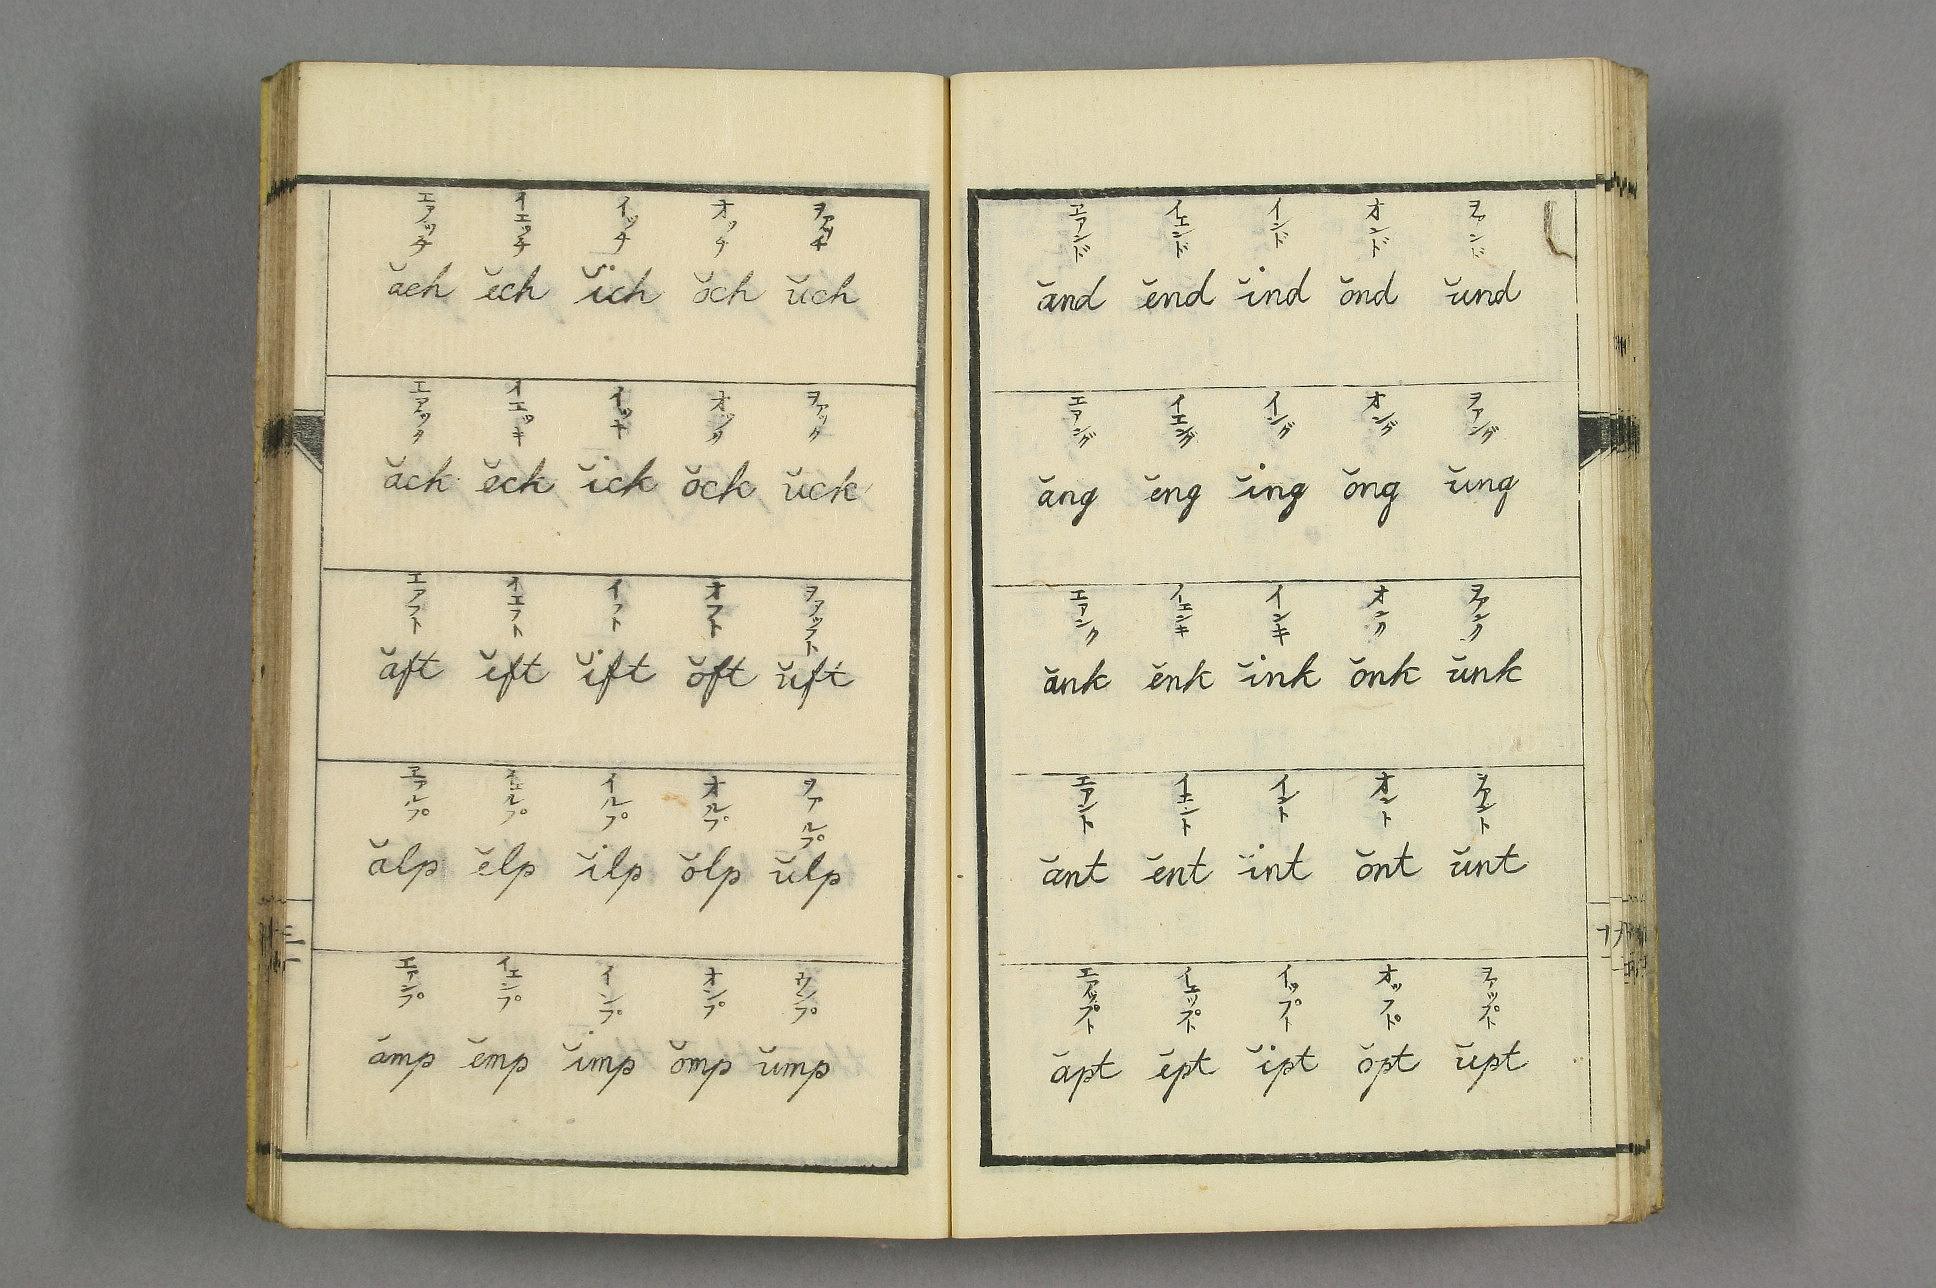 エアッチ イエッチ イッチ オッチ ヲァッチ
ăch ĕch ĭch ŏch ŭch
エアック イエッキ イッキ オック ヲアック
ăck ĕck ĭck ŏck ŭck
エアフト イエフト イフト オフト ヲアッフト
ăft ĕft ĭft ŏft ŭft
エアルプ イエルプ イルプ オルプ ヲアルプ
ălp ĕlp ĭlp ŏlp ŭlp
エアンプ イエンプ インプ オンプ ウンプ
ămp ĕmp ĭmp ŏmp ŭmp
エアンド イエンド インド オンド ヲアンド
ănd ĕnd ĭnd ŏnd ŭnd
エアング イエング イング オング ヲアング
ăng ĕng ĭng ŏng ŭng
エアンク イエンキ インキ オンク ヲアンク
ănk ĕnk ĭnk ŏnk ŭnk
エアント イエント イント オント ヲアント
ănt ĕnt ĭnt ŏnt ŭnt
エアップト イエップト イップト オップト ヲアップト
ăpt ĕpt ĭpt ŏpt ŭpt